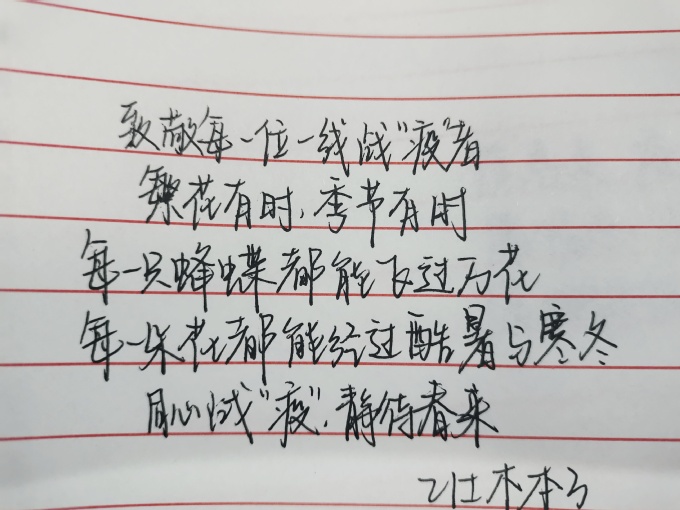 致敬每一位一线战"疫"者
繁花有时，季节有时
每一只蜂蝶都能飞过万花
每一朵花都能经过酷暑与寒冬
同心战"疫"，静待春来